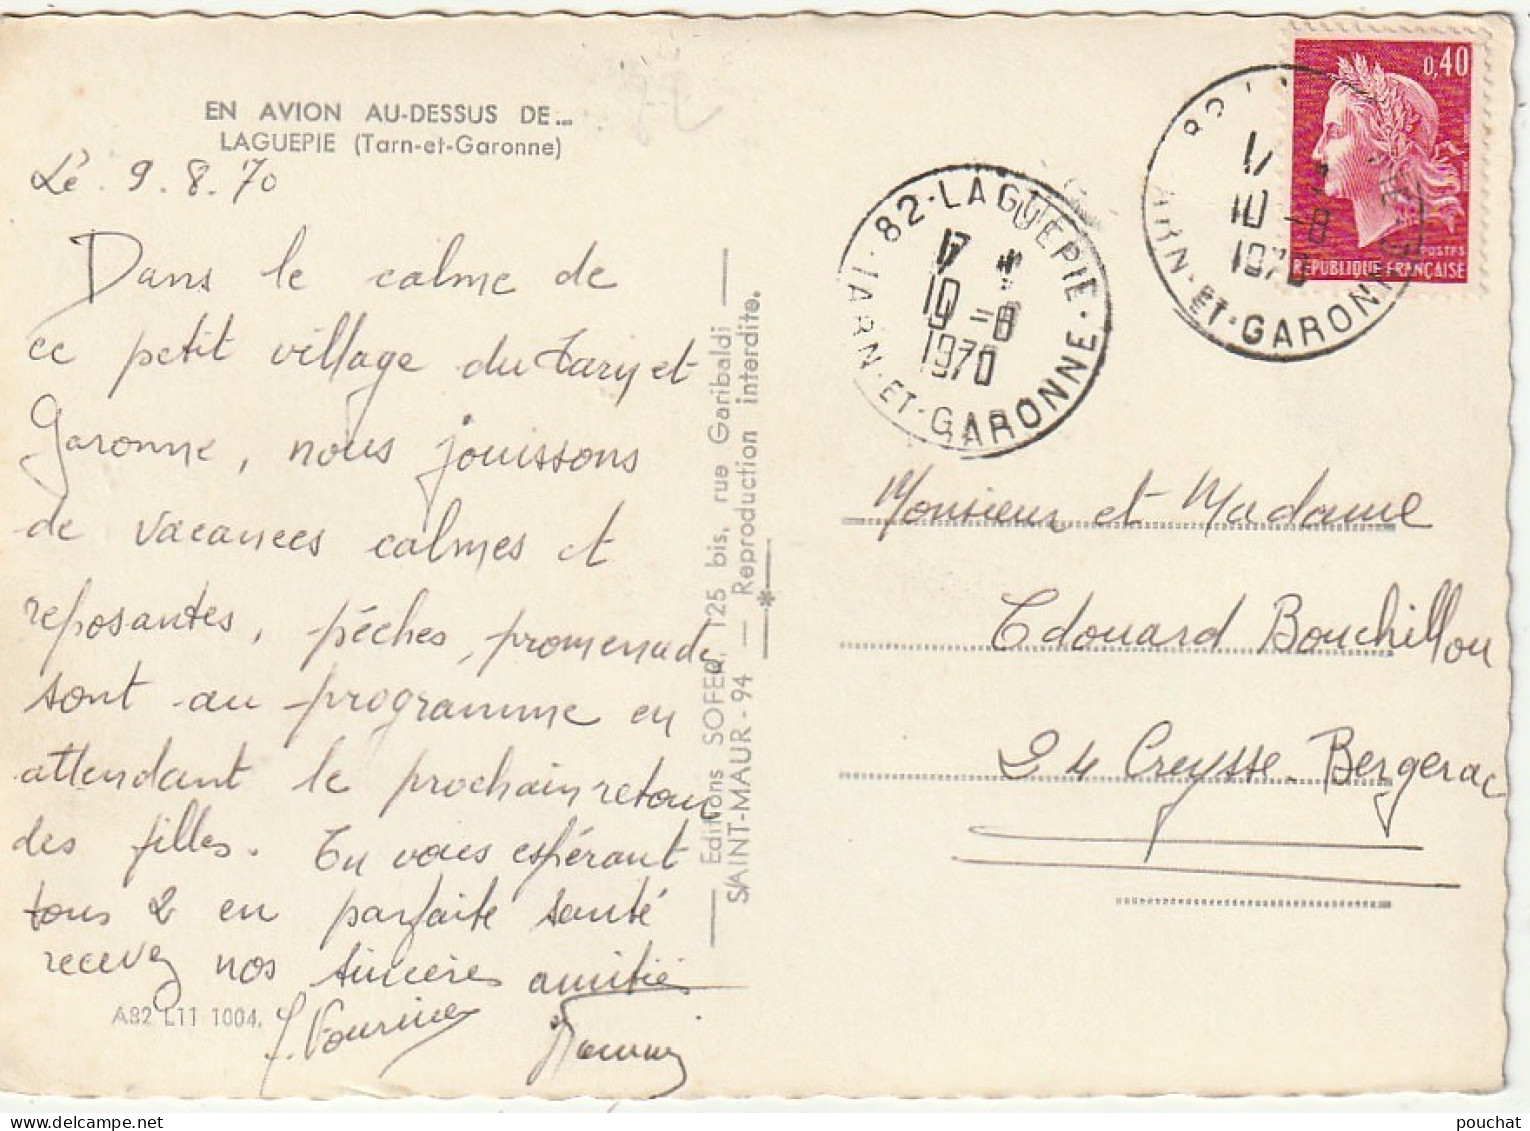 EN AVION AU-DESSUS DE...
LAGUEPIE (Tarn-et-Garonne)
Le 9.8.70
Dans le calme de
ce petit village du Tarn et
Garonne, nous jouissons
de vacances calmes et
reposantes, pêches, promenades
sont au programme en
attendant le prochain retour
des filles. En vous espérant
tous 2 en parfaite santé
recevez nos sincères amitiés
A82 L11 1004.
Editions SOFER, 125 bis, rue Garibaldi
SAINT-MAUR - 94 — Reproduction interdite.
82-LAGUEPIE
17
10-8
1970
TARN-ET-GARONNE
10-8
1970
ARN-ET-GARONNE
0,40
POSTES
REPUBLIQUE FRANÇAISE
Monsieur et Madame
Edouard Bouchillou
24 Creysse-Bergerac
pouchat